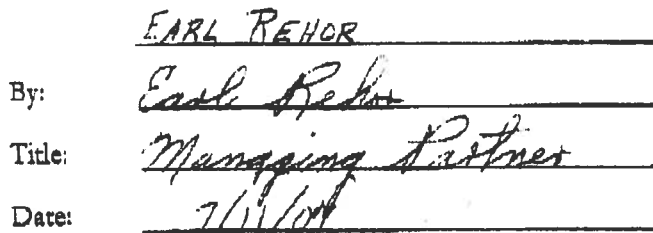 EARL REHOR
By: Earl Rehor
Title: Managing Partner
Date: 7/11/04